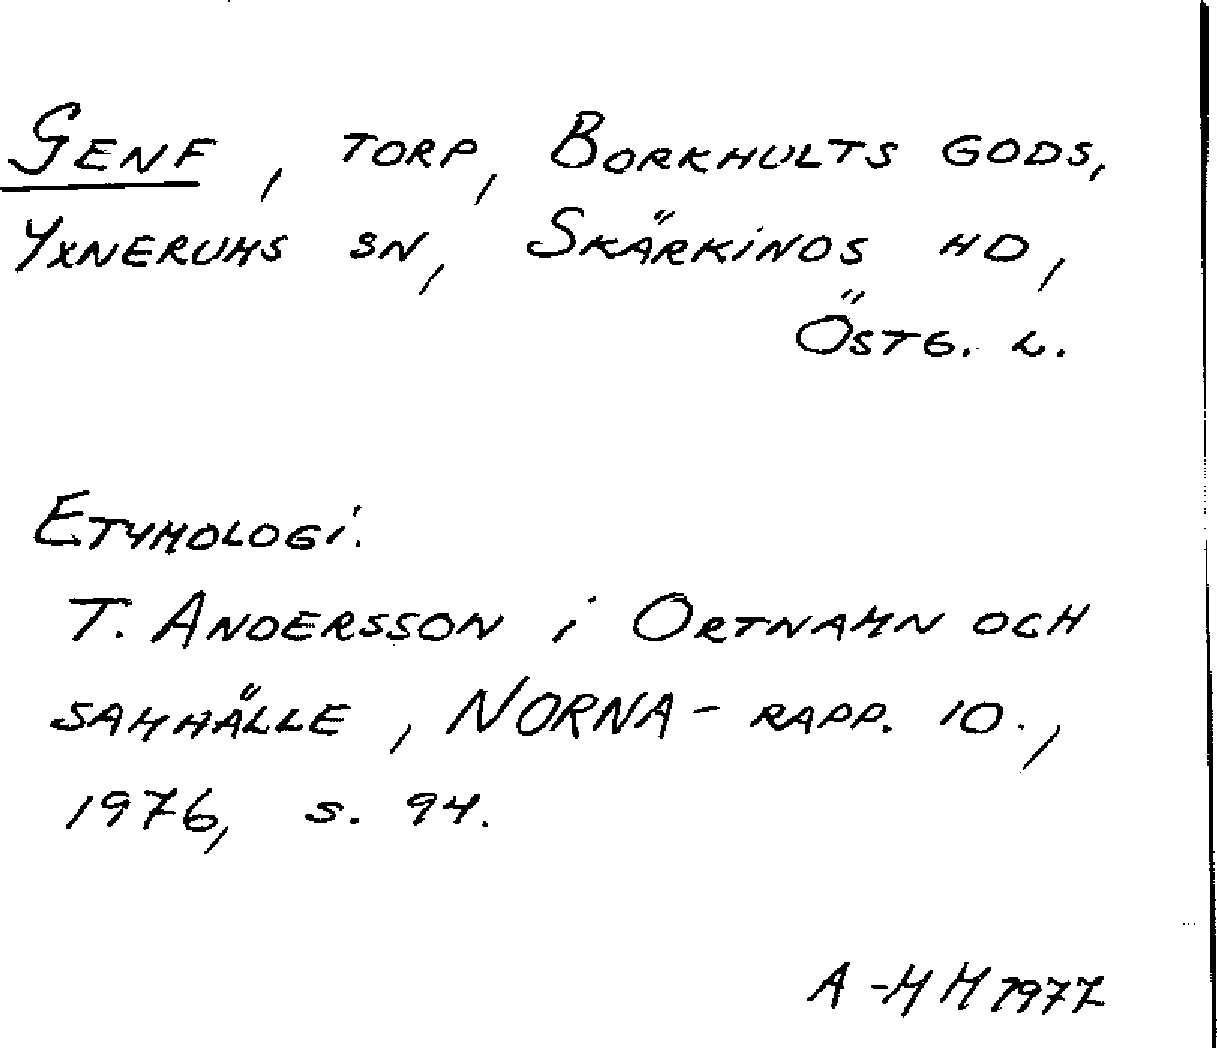 GENF, TORP, BORKHULTS GODS,
YXNERUMS SN, SKÄRKINDS HD,
ÖSTG. L.
ETYMOLOGI.
T. ANDERSSON i ORTNAMN OCH
SAMHÄLLE, NORNA-RAPP. 10.,
1976, S. 94.
A-MH 1977